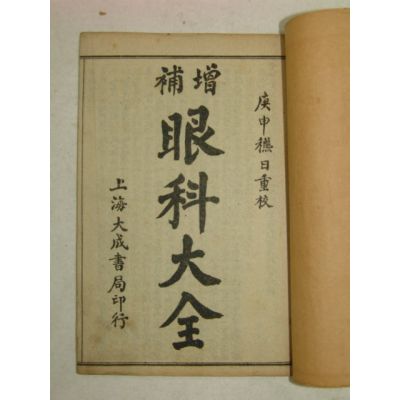 庚申穐日重校
增補
眼科大全
上海大成書局印行